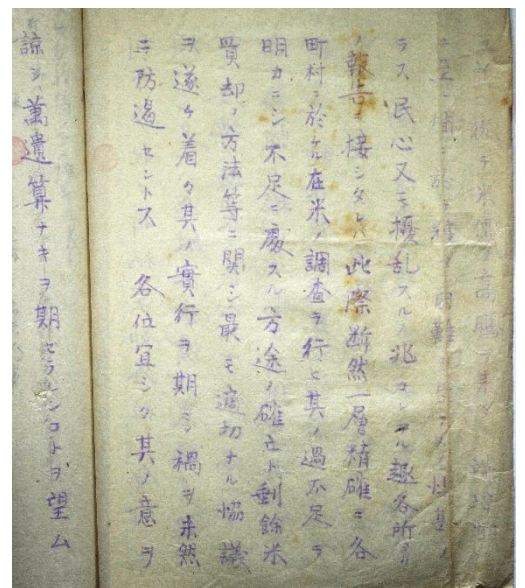 ラス民心又モ擾乱スル兆コレアル趣各所ヨリ
ノ報告ニ接シタレバ此際断然一層精確ニ各
町村ニ於ケル在米ノ調査ヲ行ヒ其ノ過不足ヲ
明カニシ不足ニ處スル方途ノ確立ト剰餘米
買却ノ方法等ニ関シ最モ適切ナル協議
ヲ遂ケ着々其ノ實行ヲ期シ禍ヲ未然
ニ防遏セントス 各位冝シク其ノ意ヲ
諒シ萬遺算ナキヲ期セラレンコトヲ望ム